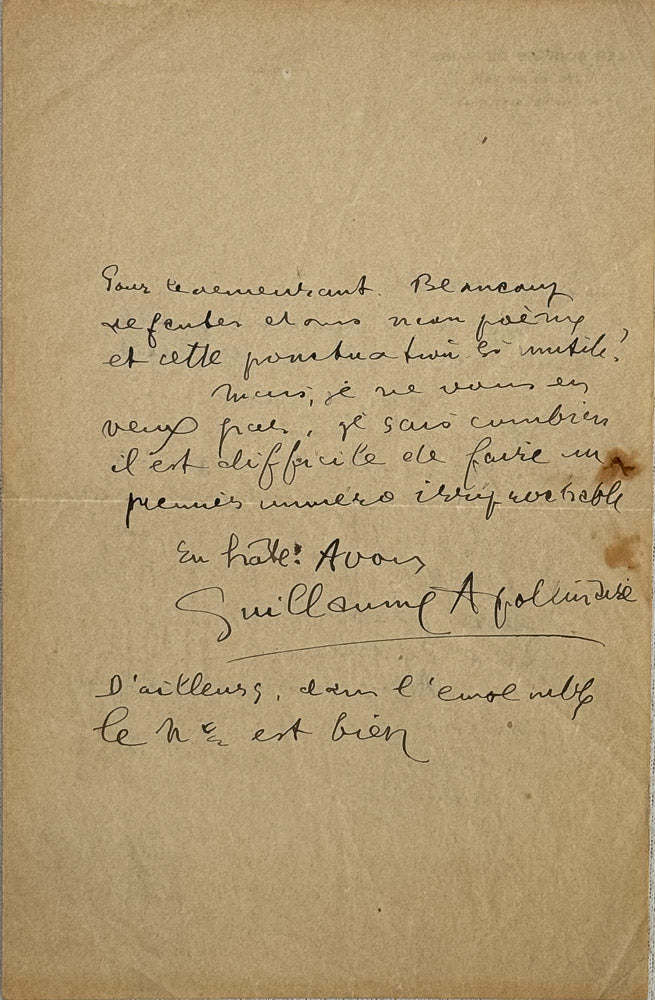 Pour le demeurant. Beaucoup
de fautes dans mon poème
et cette ponctuation si inutile!
Mais, je ne vous en
veux pas, je sais combien
il est difficile de faire un
premier numéro irréprochable
En hâte: A vous
Guillaume Apollinaire
D'ailleurs, dans l'ensemble
le N° est bien